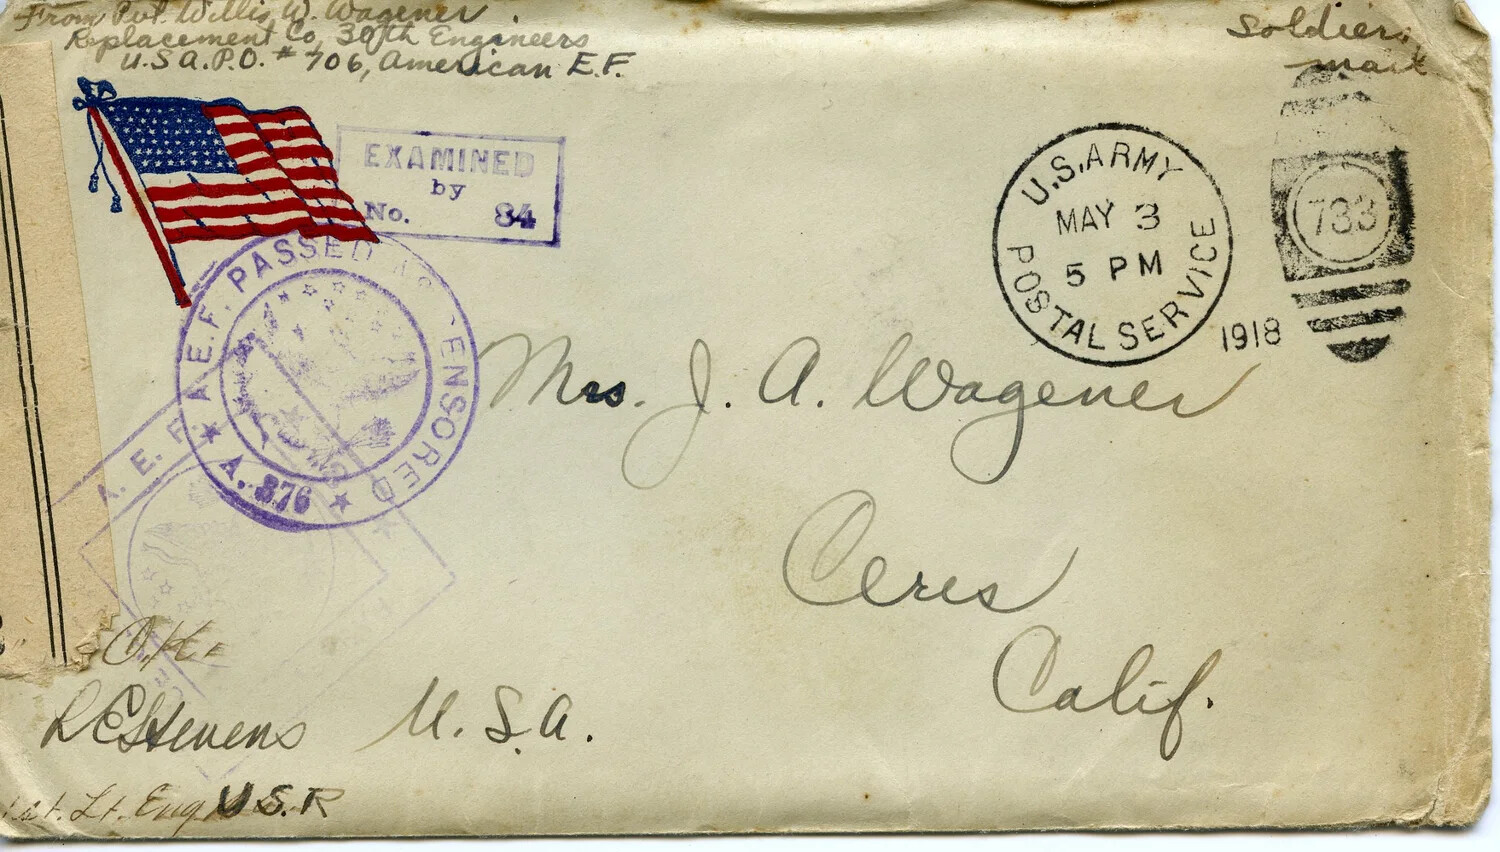 From Pvt. Willis W. Wagener.
Replacement Co, 30th Engineers
U.S.A.P.O. # 706, American E.F.
Soldier's
mail
EXAMINED
by
No. 84
U.S. ARMY
MAY 3
5 PM
POSTAL SERVICE
1918
733
A.E.F. PASSED AS CENSORED
A. 876
A. E. F.
Mrs. J. A. Wagener
Ceres
Calif.
U. S. A.
O.K.
R E Stevens
1st. Lt. Engr U.S.R